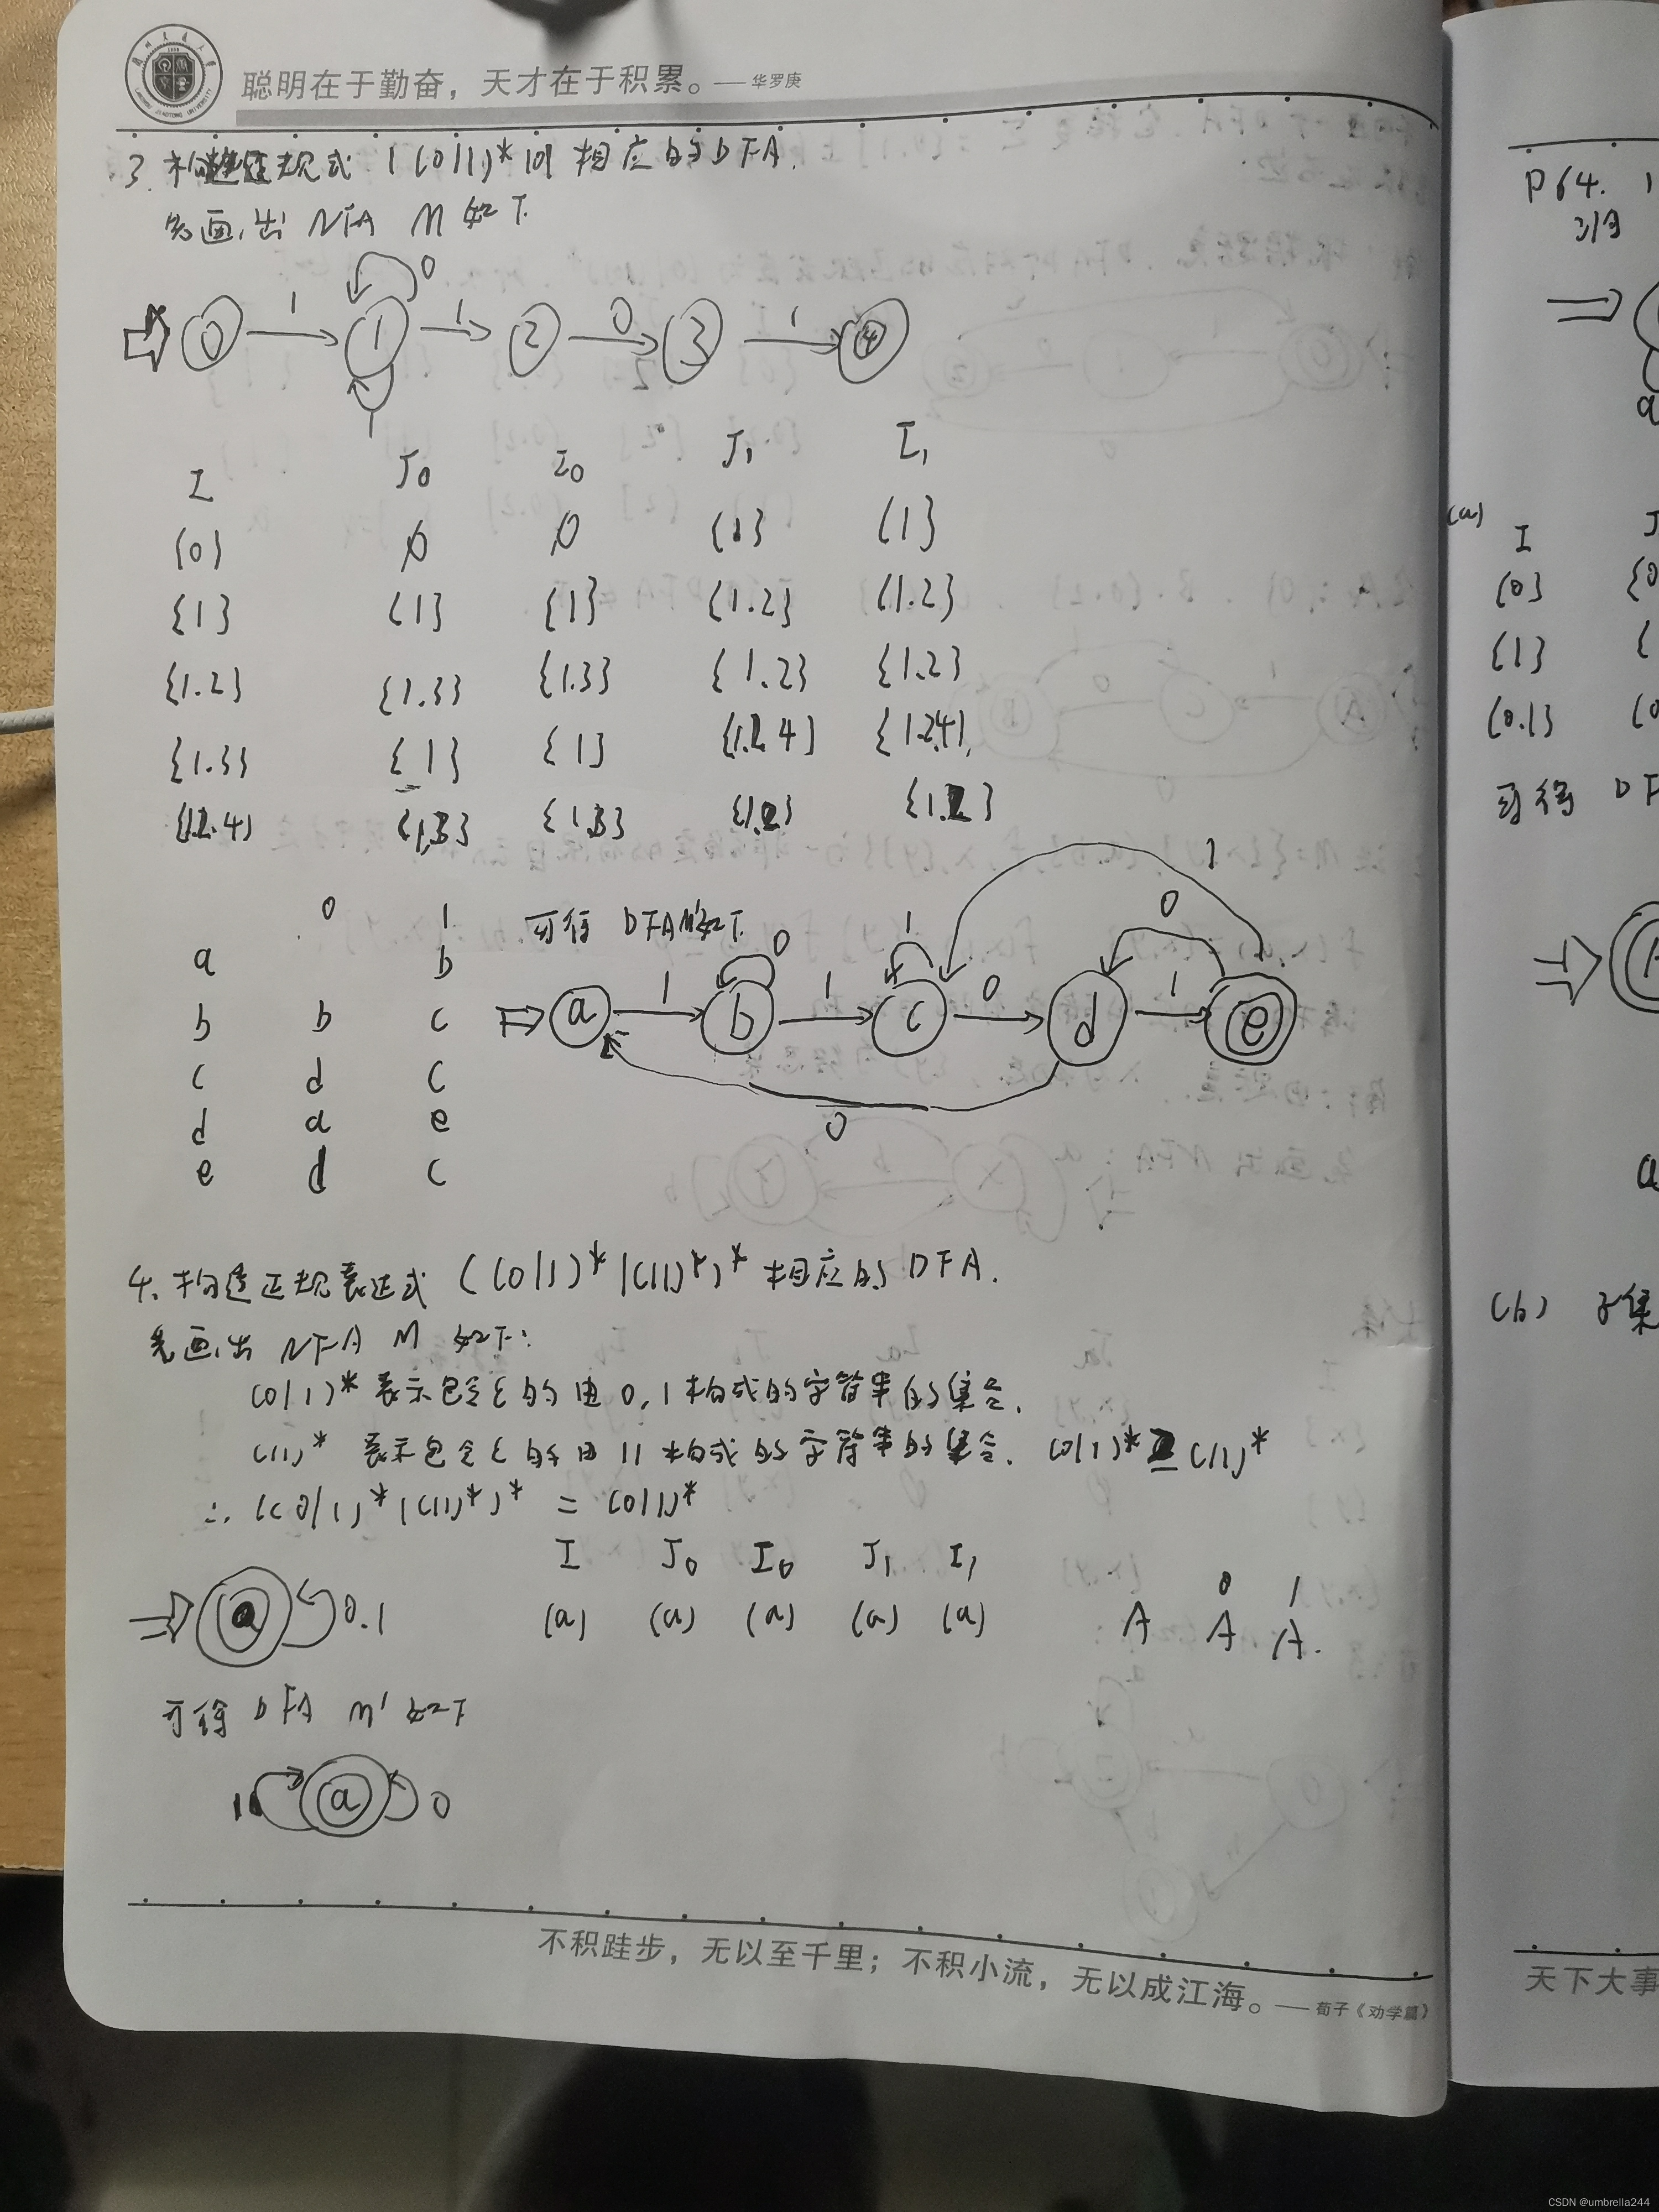 聪明在于勤奋，天才在于积累。——华罗庚
3. 构造正规式 1(0|1)*101 相应的DFA.
先画出 NFA M 如下.
0
0 1 1 1 2 0 3 1 4
1
I J0 I0 J1 I1
{0} ∅ ∅ {1} {1}
{1} {1} {1} {1.2} {1.2}
{1.2} {1.3} {1.3} {1.2} {1.2}
{1.3} {1} {1} {1.2.4} {1.2.4}
{1.2.4} {1.3} {1.3} {1.2} {1.2}
0 1
a b
b b c
c d c
d a e
e d c
可得 DFA M'如下.
0 1 0 1
a 1 b 1 c 0 d 1 e
0
4. 构造正规表达式 ((0|1)*|(11)*)* 相应的 DFA.
先画出 NFA M 如下:
(0|1)* 表示包含ε的由 0,1 构成的字符串的集合.
(11)* 表示包含ε的由 11 构成的字符串的集合. (0|1)* ⊇ (11)*
∴ ((0|1)*|(11)*)* = (0|1)*
a 0.1
I J0 I0 J1 I1
{a} {a} {a} {a} {a}
0 1
A A A.
可得 DFA M' 如下
1 a 0
不积跬步，无以至千里；不积小流，无以成江海。——荀子《劝学篇》
P64. 1
(a)
I J
{0} {0
{1} {
{0.1} {0
可得 DF
a
(b) 子集
天下大事
CSDN @umbrella244